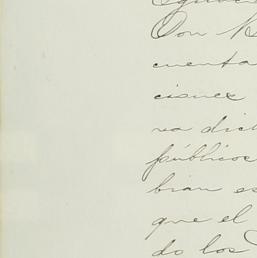 Don
cuenta
ciones
va dich
públicos
bian es
que el
do los